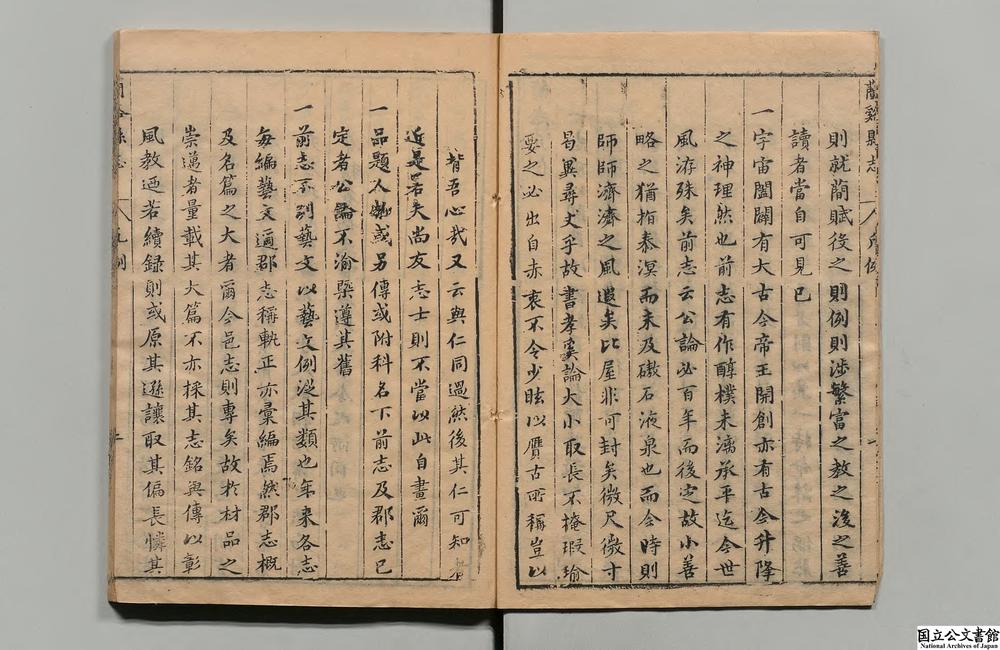 蘭谿縣志 凡例
則就簡賦後之則例則涉繁富之教之後之善
讀者當自可見已
一宇宙闔闢有大古今帝王開創亦有古今升降
之神理然也前志有作醇樸未漓承平迄今世
風浮殊矣前志云公論必百年而後定故小善
略之猶指泰溟而未及礮石液泉也而今時則
師師濟濟之風遐矣比屋非可封矣微尺微寸
曷異尋丈乎故書孝奚論大小取長不掩瑕瑜
要之必出自赤衷不令少眩以贗古所稱豈以
背吾心哉又云與仁同過然後其仁可知者
近是若夫尚友志士則不當以此自畫爾
一品題人物或另傳或附科名下前志及郡志已
定者公論不渝槩遵其舊
一前志不別藝文以藝文例從其類也年來各志
每編藝文邇郡志稱軌正亦彙編焉然郡志概
及名篇之大者爾今邑志則專矣故於材品之
崇邁者量載其大篇不亦採其志銘與傳以彰
風教迺若續録則或原其遜讓取其偏長憐其
凡例
国立公文書館
National Archives of Japan